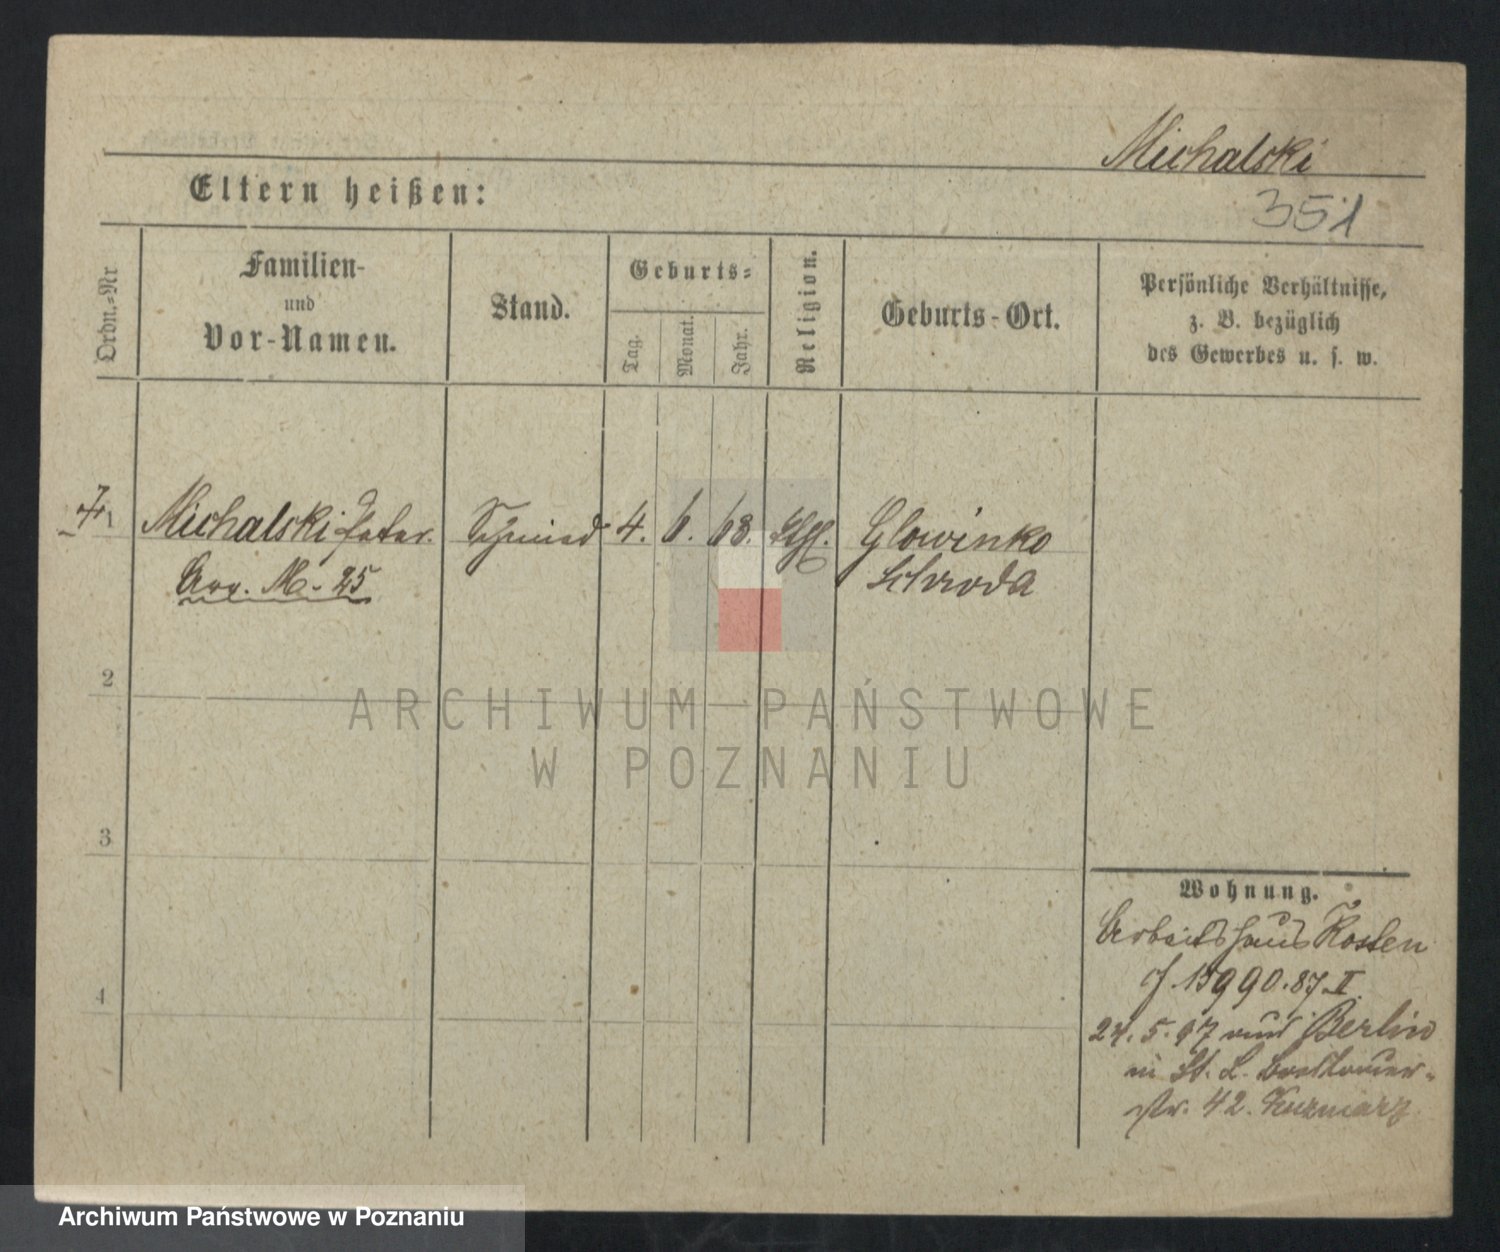 Michalski
351
Eltern heißen:
Ordn.-Nr
Familien-
und
Vor-Namen.
Stand.
Geburts-
Tag.
Monat.
Jahr.
Religion.
Geburts-Ort.
Persönliche Verhältnisse,
z. B. bezüglich
des Gewerbes u. s. w.
1 Michalski Peter. Schmied 4. 6. 68. Glowinko
M. 25 Schroda
2
3
4
ARCHIWUM PAŃSTWOWE
W POZNANIU
Wohnung.
Arbeitshaus Kosten
J. 15990.87.I
5.97 Berlin
in St. L.
str. 42.
Archiwum Państwowe w Poznaniu